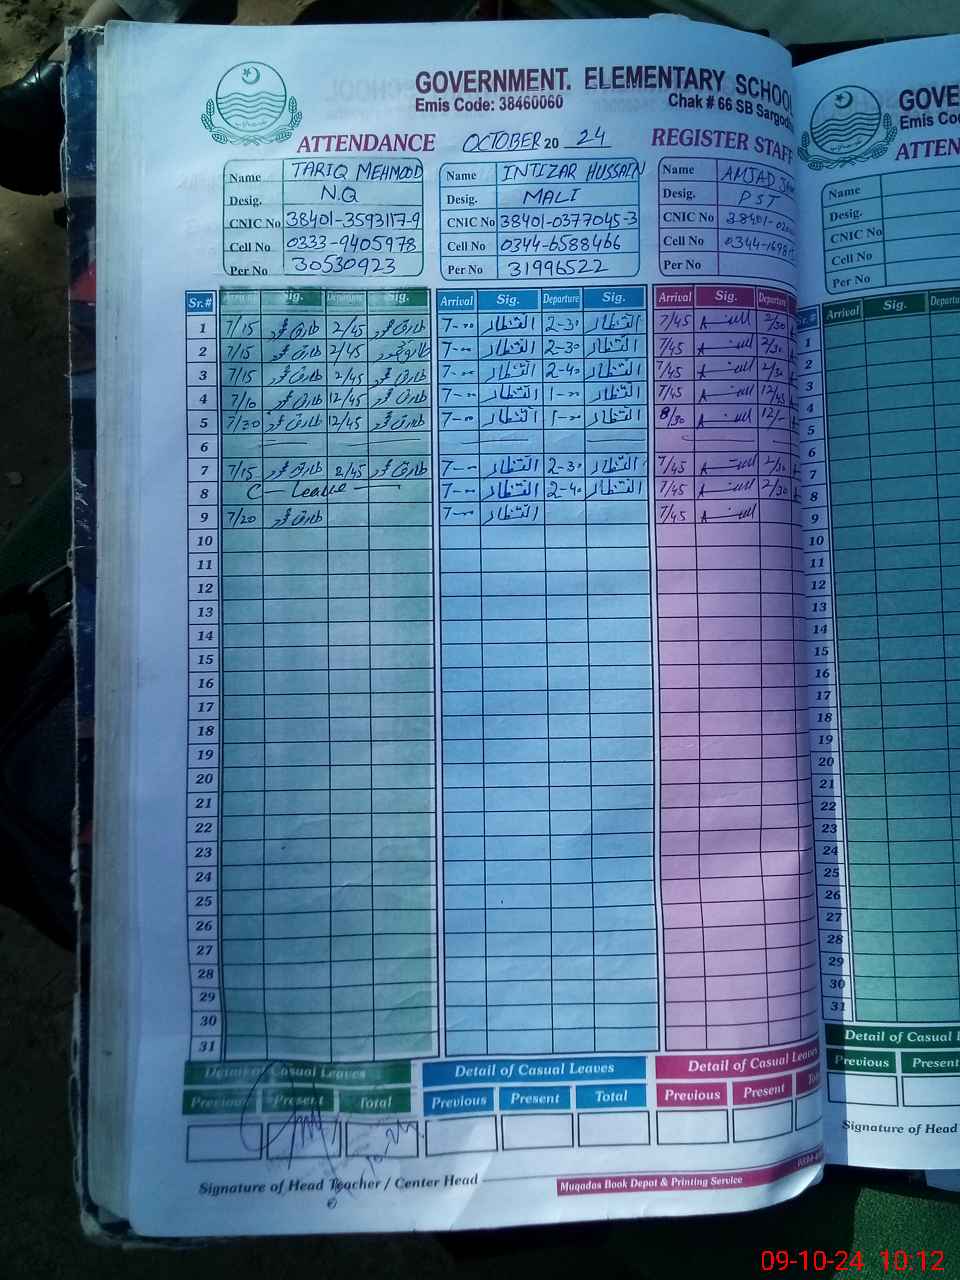 GOVERNMENT. ELEMENTARY SCHOOL
Emis Code: 38460060
Chak # 66 SB Sargodha
ATTENDANCE OCTOBER 20 24 REGISTER STAFF
Name TARIQ MEHMOOD Name INTIZAR HUSSAIN Name AMJAD
Desig. N.Q Desig. MALI Desig. PST
CNIC No 38401-3593117-9 CNIC No 38401-0377045-3 CNIC No 38401-
Cell No 0333-9405978 Cell No 0344-6588466 Cell No 0344-1698
Per No 30530923 Per No 31996522 Per No
Sr.# Arrival Sig. Departure Sig. Arrival Sig. Departure Sig. Arrival Sig. Departure
1 7/15 طارق محمود 2/45 طارق محمود 7-00 انتظار 2-30 انتظار 7/45 2/30
2 7/15 طارق محمود 2/45 طارق محمود 7-00 انتظار 2-30 انتظار 7/45 2/30
3 7/15 طارق محمود 2/45 طارق محمود 7-00 انتظار 2-40 انتظار 7/45 2/30
4 7/10 طارق محمود 12/45 طارق محمود 7-00 انتظار 1-00 انتظار 7/45 12/45
5 7/30 طارق محمود 12/45 طارق محمود 7-00 انتظار 1-00 انتظار 8/30 12/-
6
7 7/15 طارق محمود 2/45 طارق محمود 7-00 انتظار 2-30 انتظار 7/45 2/30
8 C - Leave 7-00 انتظار 2-40 انتظار 7/45 2/30
9 7/20 طارق محمود 7-00 انتظار 7/45
10
11
12
13
14
15
16
17
18
19
20
21
22
23
24
25
26
27
28
29
30
31
Detail of Casual Leaves Detail of Casual Leaves Detail of Casual Leaves
Previous Present Total Previous Present Total Previous Present
Signature of Head Teacher / Center Head
Muqadas Book Depot & Printing Service
GOVE
Emis Co
ATTEN
Name
Desig.
CNIC No
Cell No
Per No
Sr.# Arrival Sig. Departu
1
2
3
4
5
6
7
8
9
10
11
12
13
14
15
16
17
18
19
20
21
22
23
24
25
26
27
28
29
30
31
Detail of Casual
Previous Present
Signature of Head
09-10-24 10:12